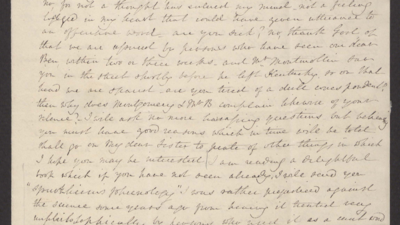 no, for not a thought has entered my mind, not a feeling
lodged in my heart that could have given utterance to
an offensive word. are you sick? no, thank God of
that we are assured by persons who have seen one dear
Ben within two or three weeks. and Mr Montmollin saw
you in the street shortly before he left Kentucky. so on that
head we are at are you tired of a dull correspondent?
then why does Montgomery & complain likewise of your
silence? I will ask no more questions but believe
you must have good reasons which in time will be told
shall go on My dear Sister to prate of other things in which
I hope you may be interested. I am reading a delightful
book which if you have not seen already, I will send you
"Spurzheims phrenology" I was rather prejudiced against
the science some years ago from hearing it treated very
unphilosophically, by persons who used it as a